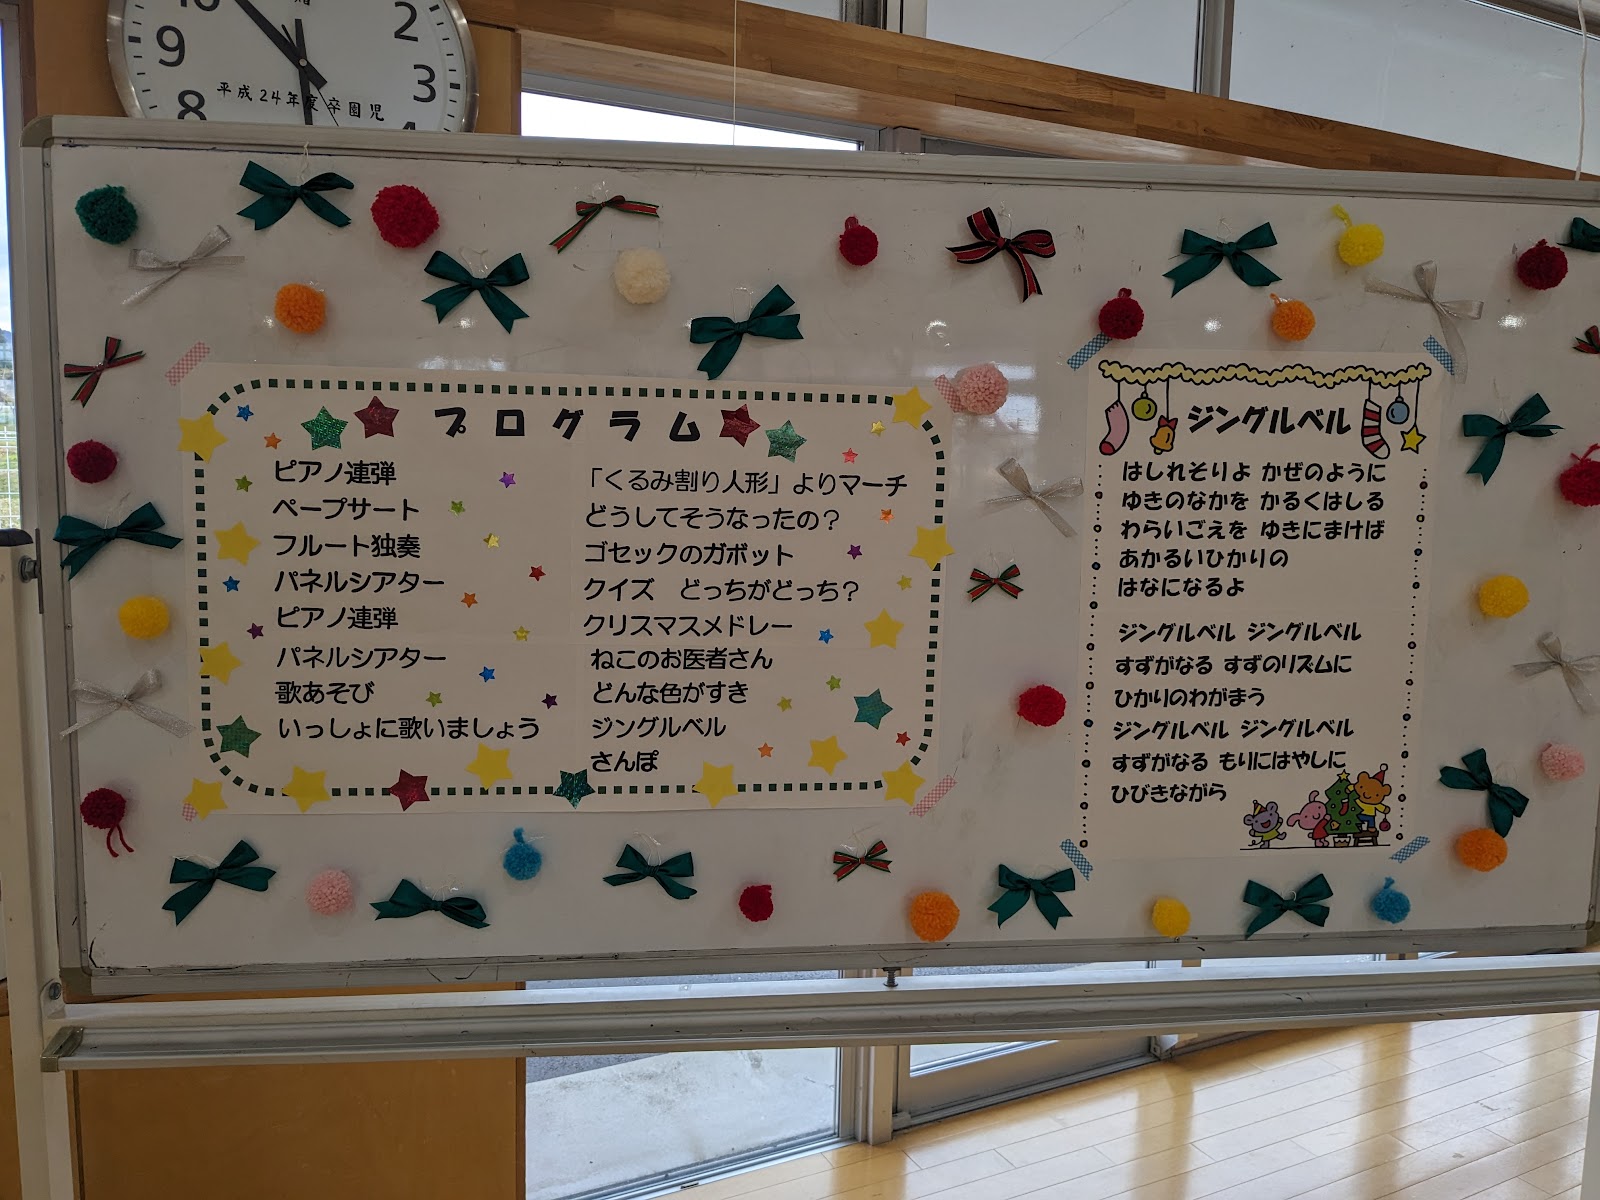 10
2
9
3
8
4
平成24年度卒園児
プログラム
ピアノ連弾 「くるみ割り人形」よりマーチ
ペープサート どうしてそうなったの？
フルート独奏 ゴセックのガボット
パネルシアター クイズ どっちがどっち？
ピアノ連弾 クリスマスメドレー
パネルシアター ねこのお医者さん
歌あそび どんな色がすき
いっしょに歌いましょう ジングルベル
さんぽ
ジングルベル
はしれそりよ かぜのように
ゆきのなかを かるくはしる
わらいごえを ゆきにまけば
あかるいひかりの
はなになるよ
ジングルベル ジングルベル
すずがなる すずのリズムに
ひかりのわがまう
ジングルベル ジングルベル
すずがなる もりにはやしに
ひびきながら